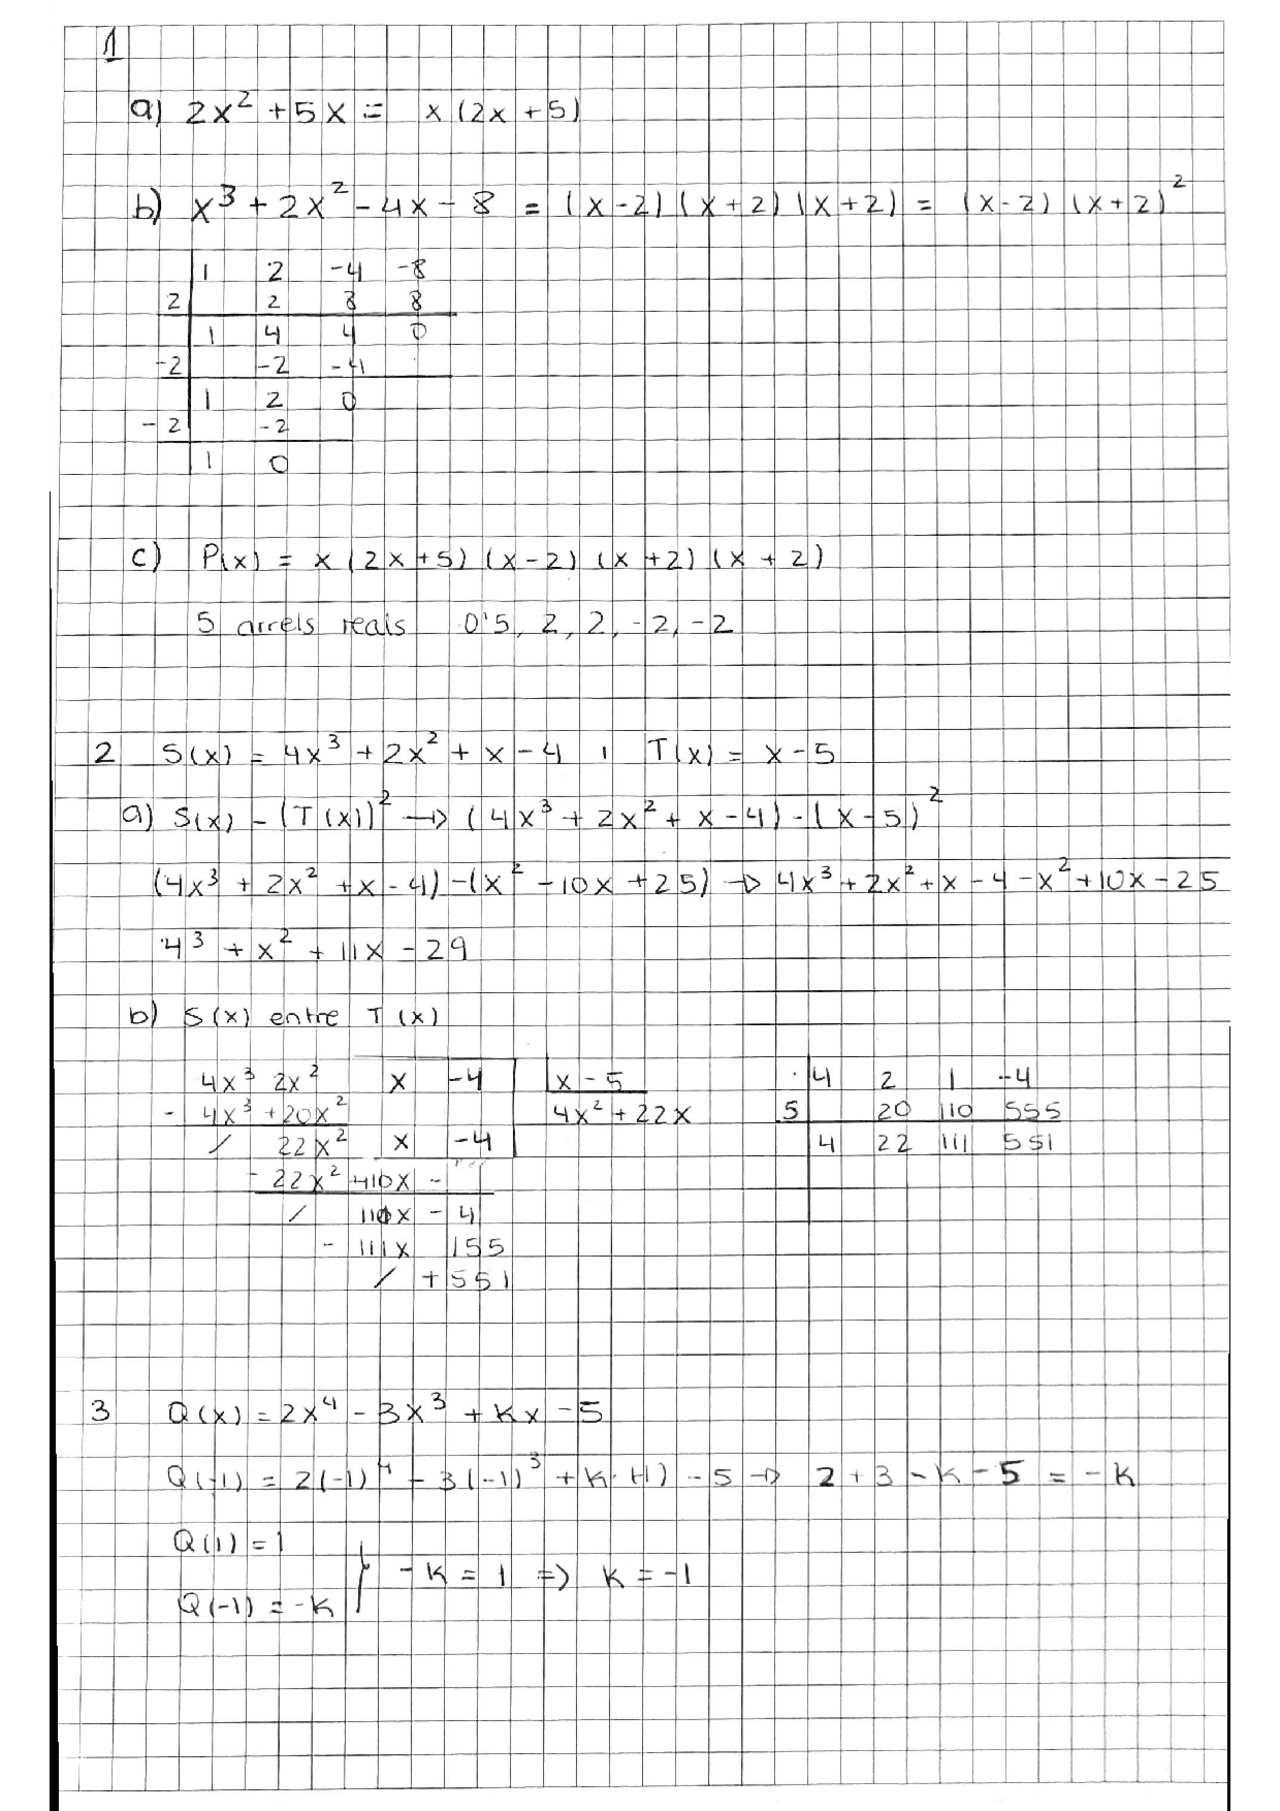 1
a) 2x² + 5x = x(2x + 5)
b) x³ + 2x² - 4x - 8 = (x-2)(x+2)(x+2) = (x-2)(x+2)²
1 2 -4 -8
2 2 8 8
1 4 4 0
-2 -2 -4
1 2 0
-2 -2
1 0
c) P(x) = x(2x+5)(x-2)(x+2)(x+2)
5 arrels reals 0'5, 2, 2, -2, -2
2 S(x) = 4x³ + 2x² + x - 4 i T(x) = x - 5
a) S(x) - (T(x))² → (4x³ + 2x² + x - 4) - (x - 5)²
(4x³ + 2x² + x - 4) - (x² - 10x + 25) → 4x³ + 2x² + x - 4 - x² + 10x - 25
4³ + x² + 11x - 29
b) S(x) entre T(x)
4x³ 2x² x -4 x - 5 4 2 1 -4
- 4x³ + 20x² 4x² + 22x 5 20 110 555
/ 22x² x -4 4 22 111 551
- 22x² + 110x -
/ 110x - 4
- 111x 155
/ + 551
3 Q(x) = 2x⁴ - 3x³ + kx - 5
Q(-1) = 2(-1)⁴ - 3(-1)³ + k·(-1) - 5 → 2 + 3 - k - 5 = -k
Q(1) = 1
- k = 1 => k = -1
Q(-1) = -k